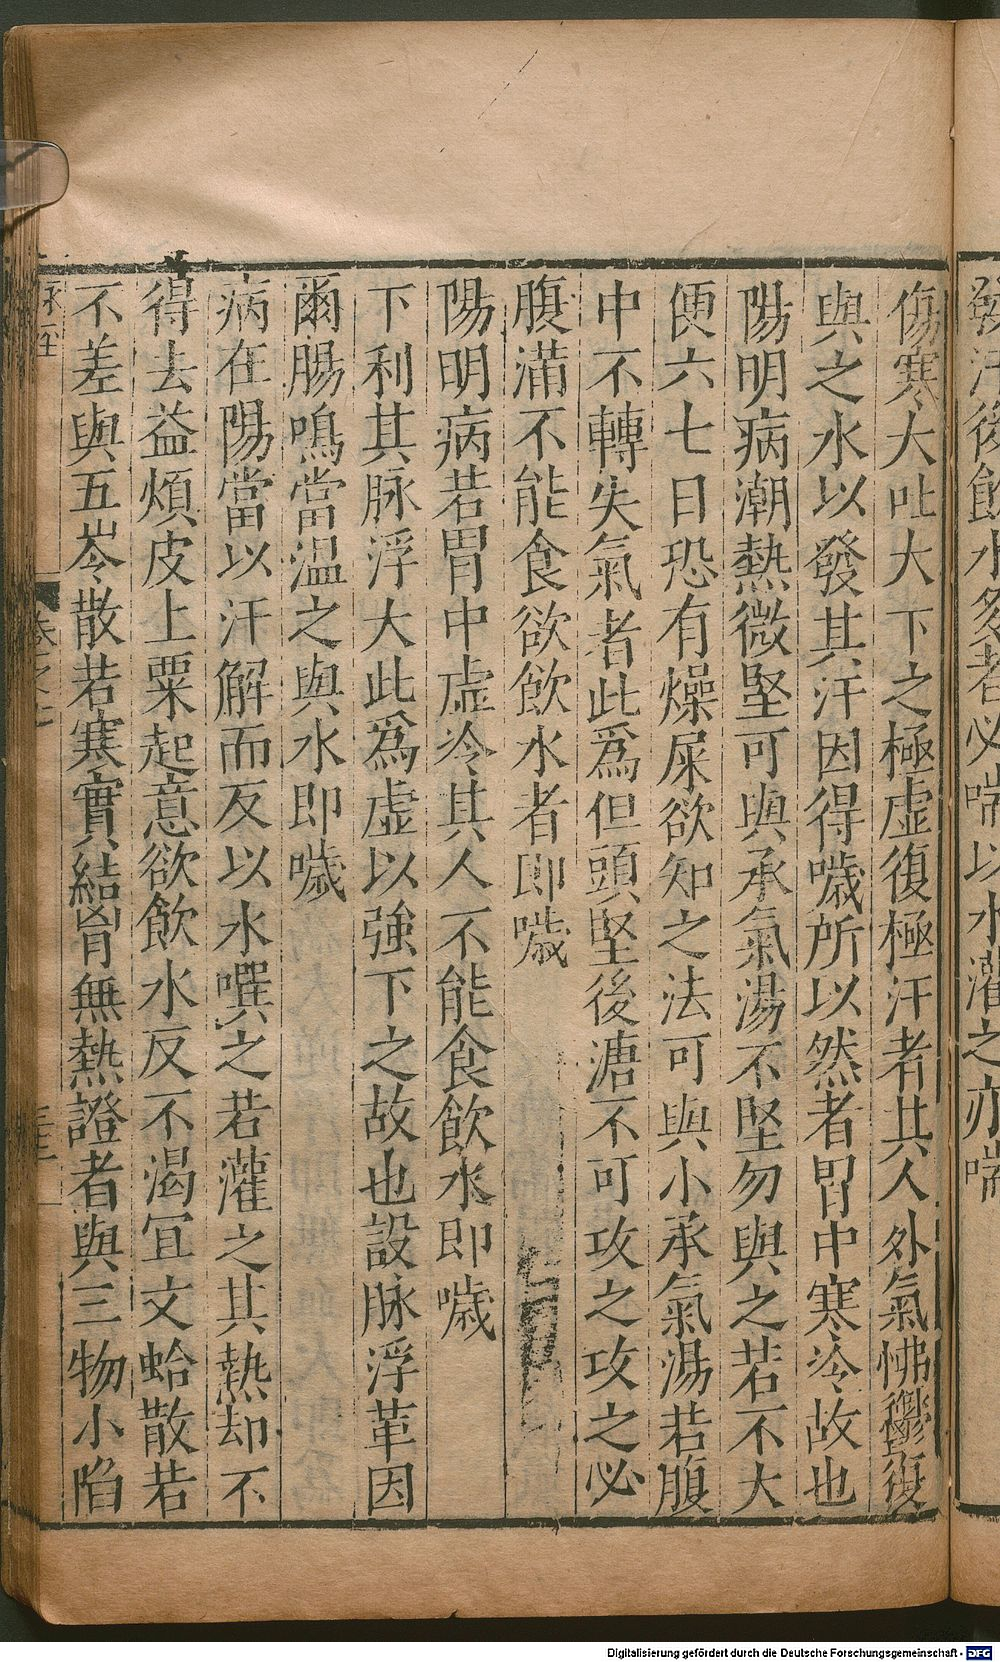 發汗後飲水多者必喘以水灌之亦喘
傷寒大吐大下之極虚復極汗者其人外氣怫鬱復
與之水以發其汗因得噦所以然者胃中寒冷故也
陽明病潮熱微堅可與承氣湯不堅勿與之若不大
便六七日恐有燥屎欲知之法可與小承氣湯若腹
中不轉失氣者此爲但頭堅後溏不可攻之攻之必
腹滿不能食欲飲水者即噦
陽明病若胃中虚冷其人不能食飲水即噦
下利其脉浮大此爲虚以強下之故也設脉浮革因
爾腸鳴當温之與水即噦
病在陽當以汗解而反以水噀之若灌之其熱却不
得去益煩皮上粟起意欲飲水反不渴宜文蛤散若
不差與五苓散若寒實結胷無熱證者與三物小陷
脉經
卷之七
Digitalisierung gefördert durch die Deutsche Forschungsgemeinschaft - DFG